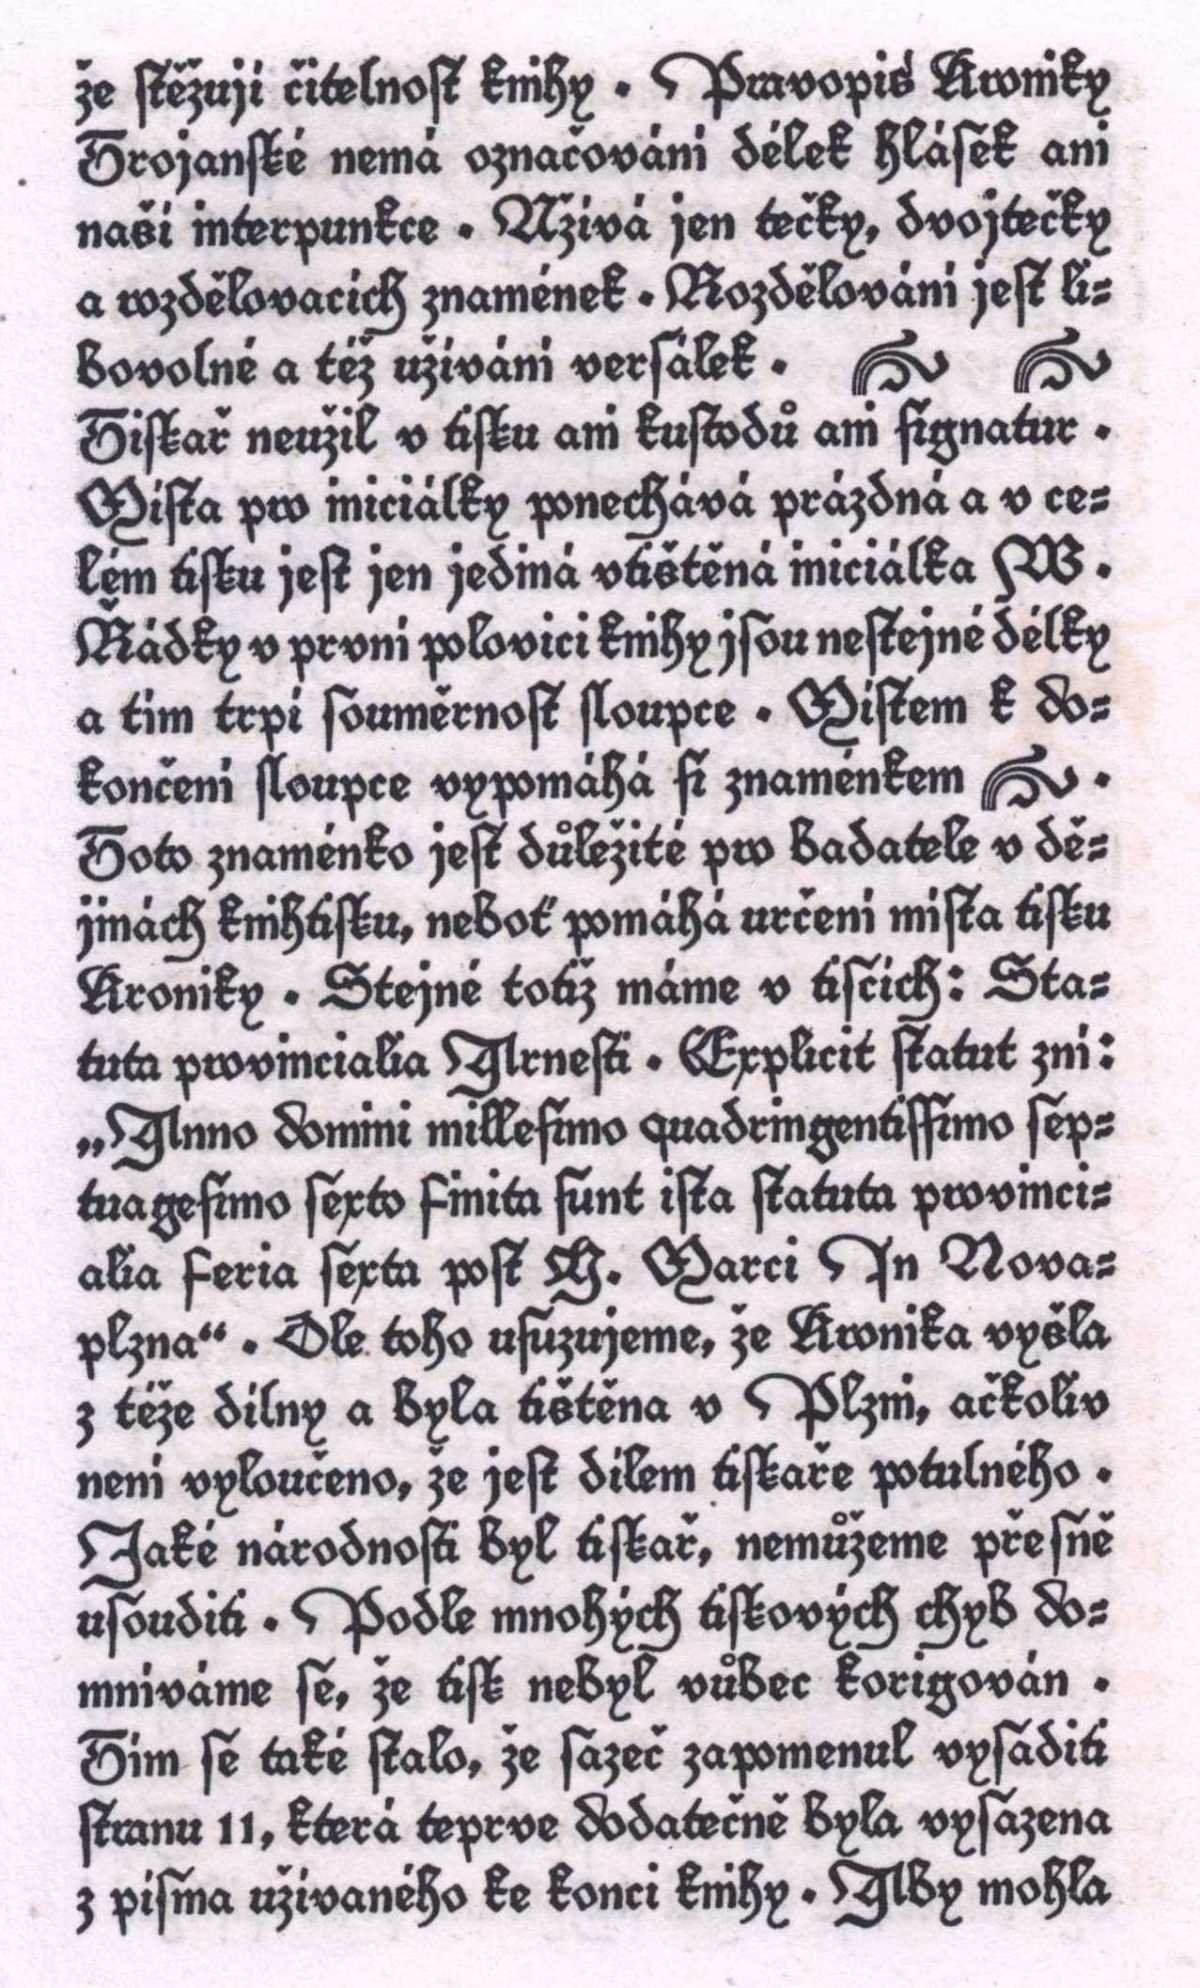 že stěžují čitelnost knihy . Pravopis Kroniky
Trojanské nemá označování délek hlásek ani
naší interpunkce . Užívá jen tečky, dvojtečky
a rozdělovacích znamének . Rozdělování jest li-
bovolné a též užívání versálek .
Tiskař neužil v tisku ani kustodů ani signatur .
Místa pro iniciálky ponechává prázdná a v ce-
lém tisku jest jen jediná vtištěná iniciálka W .
Řádky v první polovici knihy jsou nestejné délky
a tím trpí souměrnost sloupce . Místem k do-
končení sloupce vypomáhá si znaménkem .
Toto znaménko jest důležité pro badatele v dě-
jinách knihtisku, neboť pomáhá určení místa tisku
Kroniky . Stejné totiž máme v tiscích: Sta-
tuta provincialia Arnesti . Explicit statut zní:
„Anno domini millesimo quadringentissimo sep-
tuagesimo sexto finita sunt ista statuta provinci-
alia feria sexta post G. Marci In Nova-
plzna“ . Dle toho usuzujeme, že Kronika vyšla
z téže dílny a byla tištěna v Plzni, ačkoliv
není vyloučeno, že jest dílem tiskaře potulného .
Jaké národnosti byl tiskař, nemůžeme přesně
usouditi . Podle mnohých tiskových chyb do-
mníváme se, že tisk nebyl vůbec korigován .
Tím se také stalo, že sazeč zapomenul vysaditi
stranu 11, která teprve dodatečně byla vysazena
z písma užívaného ke konci knihy . Aby mohla